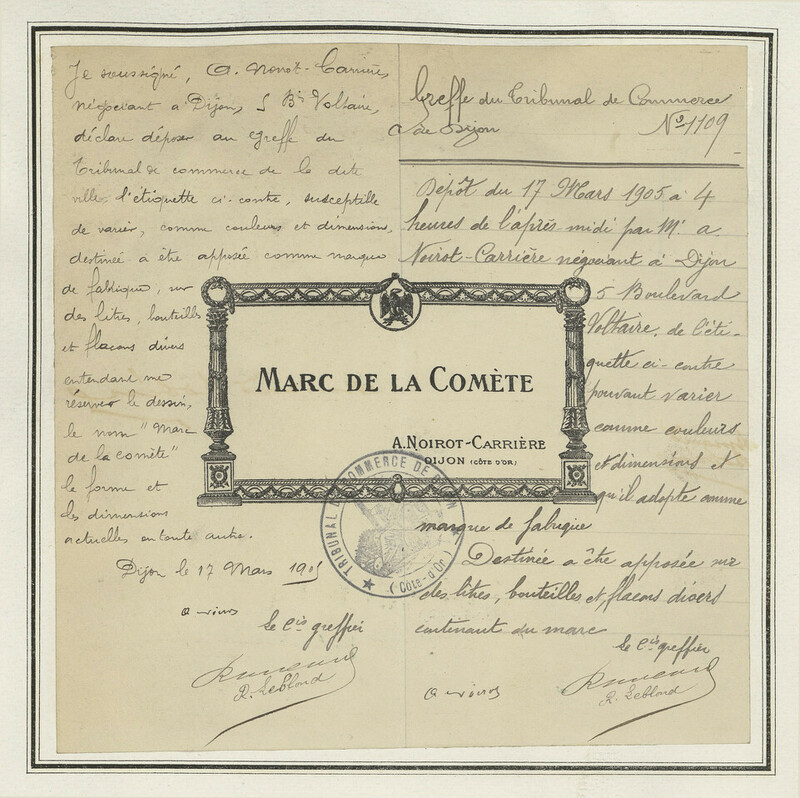 Je soussigné, A. Noirot-Carrière,
négociant à Dijon, 5 Bd Voltaire,
déclare déposer au Greffe du
Tribunal de commerce de la dite
ville l'étiquette ci-contre, susceptible
de varier, comme couleurs et dimensions,
destinée a être apposée comme marque
de fabrique, sur
des litres, bouteilles
et flacons divers
entendant me
réserver le dessin,
le nom "Marc
de la comète"
la forme et
les dimensions
actuelles en toute autre.
Dijon le 17 Mars 1905
Le Cis greffier
R. Leblond
Greffe du Tribunal de Commerce
de Dijon No 1109
Dépôt du 17 Mars 1905 à 4
heures de l'après-midi par Mr A.
Noirot-Carrière négociant à Dijon
5 Boulevard
Voltaire, de l'éti-
quette ci-contre
pouvant varier
comme couleurs
et dimensions et
qu'il adopte comme
marque de fabrique
Destinée a être apposée sur
des litres, bouteilles et flacons divers
contenant du marc
Le Cis greffier
R. Leblond
MARC DE LA COMÈTE
A. NOIROT-CARRIÈRE
DIJON (CÔTE D'OR)
TRIBUNAL DE COMMERCE DE DIJON
(Côte-d'Or)